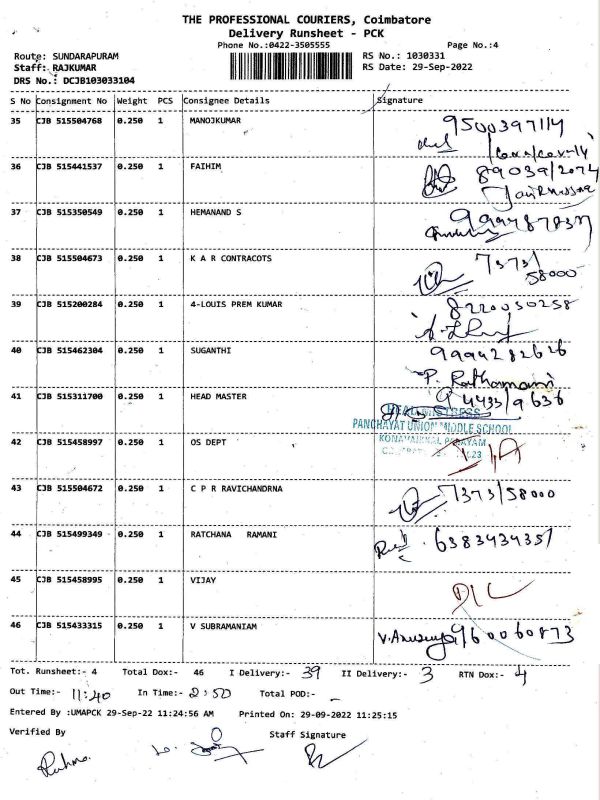 THE PROFESSIONAL COURIERS, Coimbatore
Delivery Runsheet - PCK
Phone No.:0422-3505555 Page No.:4
Route: SUNDARAPURAM RS No.: 1030331
Staff: RAJKUMAR RS Date: 29-Sep-2022
DRS No.: DCJB103033104
S No Consignment No Weight PCS Consignee Details Signature
35 CJB 515504768 0.250 1 MANOJKUMAR 9500397114
36 CJB 515441537 0.250 1 FAIHIM 89039/2074
37 CJB 515350549 0.250 1 HEMANAND S
38 CJB 515504673 0.250 1 K A R CONTRACOTS 7373/
58000
39 CJB 515200284 0.250 1 4-LOUIS PREM KUMAR 8220030258
40 CJB 515462304 0.250 1 SUGANTHI 9994282626
P. Rathamani
41 CJB 515311700 0.250 1 HEAD MASTER 94433/9636
HEADMISTRESS
PANCHAYAT UNION MIDDLE SCHOOL
42 CJB 515458997 0.250 1 OS DEPT
43 CJB 515504672 0.250 1 C P R RAVICHANDRNA 7373/58000
44 CJB 515499349 0.250 1 RATCHANA RAMANI 6383434357
45 CJB 515458995 0.250 1 VIJAY D/C
46 CJB 515433315 0.250 1 V SUBRAMANIAM 960060873
Tot. Runsheet:- 4 Total Dox:- 46 I Delivery:- 39 II Delivery:- 3 RTN Dox:- 4
Out Time:- 11:40 In Time:- 2:50 Total POD:- -
Entered By :UMAPCK 29-Sep-22 11:24:56 AM Printed On: 29-09-2022 11:25:15
Verified By Staff Signature